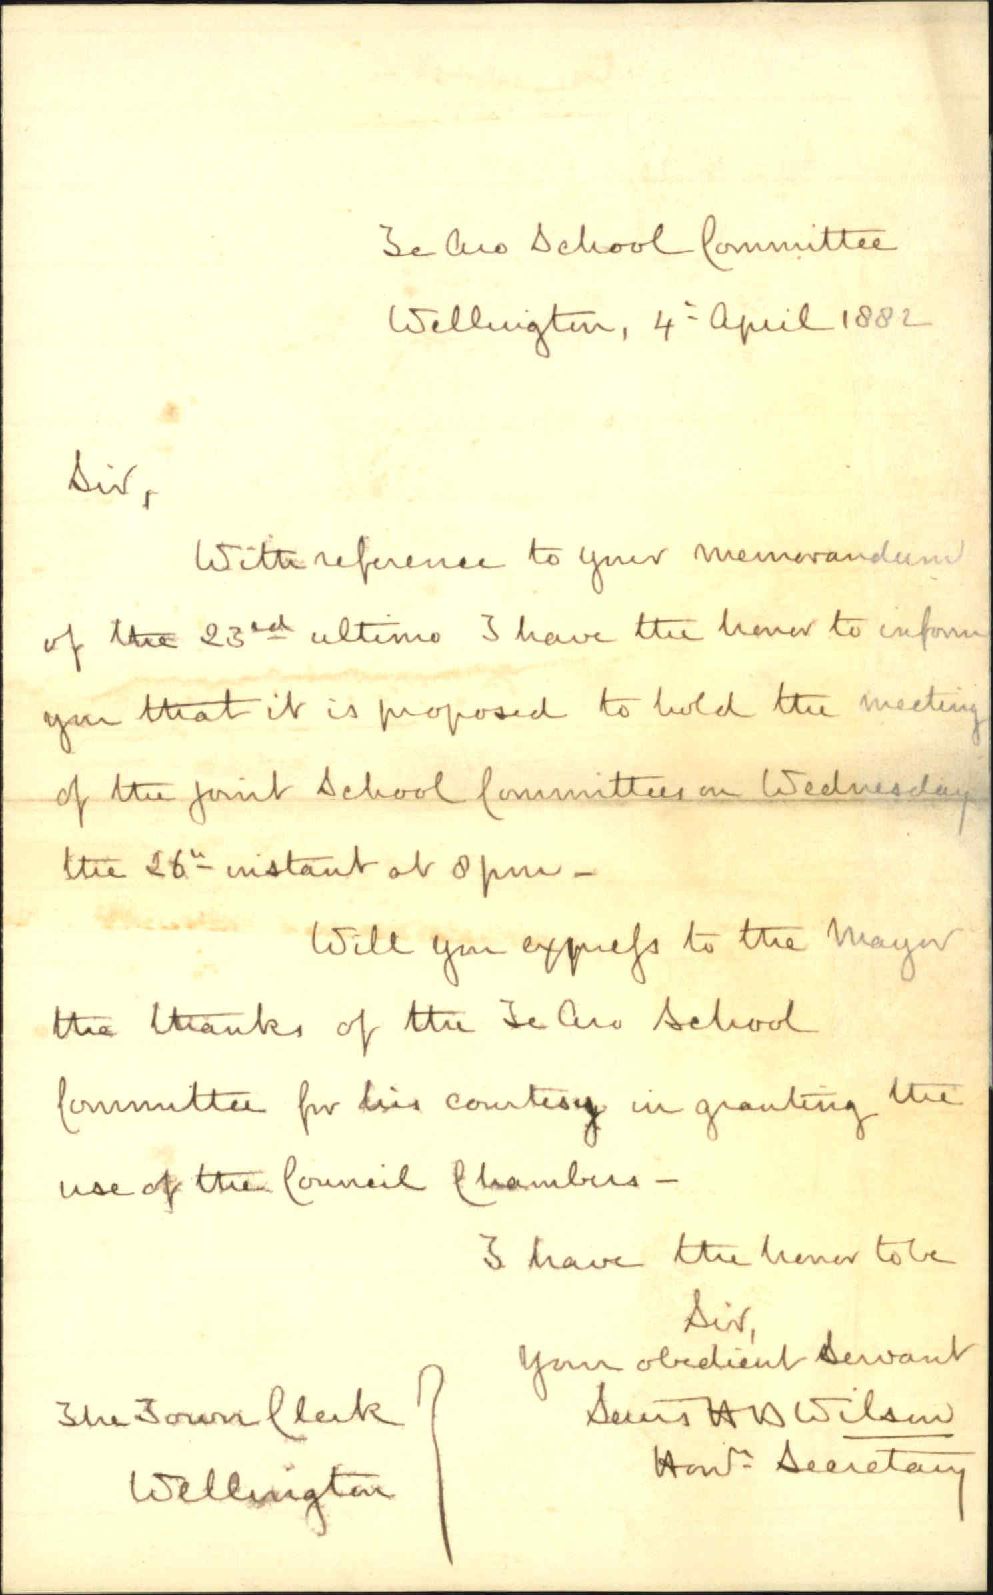 Te Aro School Committee
Wellington, 4th April 1882
Sir,
With reference to your memorandum
of the 23rd ultimo I have the honor to inform
you that it is proposed to hold the meeting
of the joint School Committees on Wednesday
the 26th instant at 8 pm -
Will you express to the Mayor
the thanks of the Te Aro School
Committee for his courtesy in granting the
use of the Council Chambers -
I have the honor to be
Sir,
Your obedient Servant
H B Wilson
Hony. Secretary
The Town Clerk
Wellington